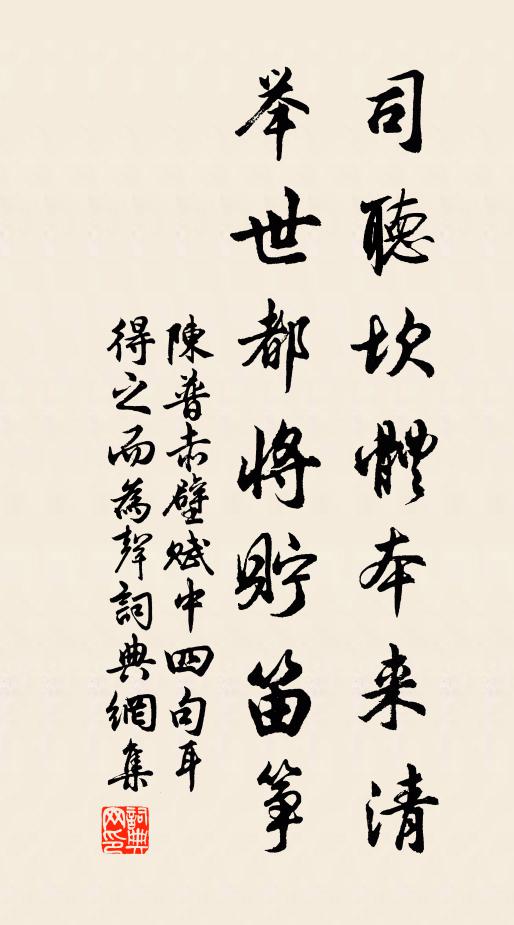 司聽坎體本来清
举世都将貯笛筝
陳普赤壁賦中四句耳
得之而為聲詞典網集
詞典網印